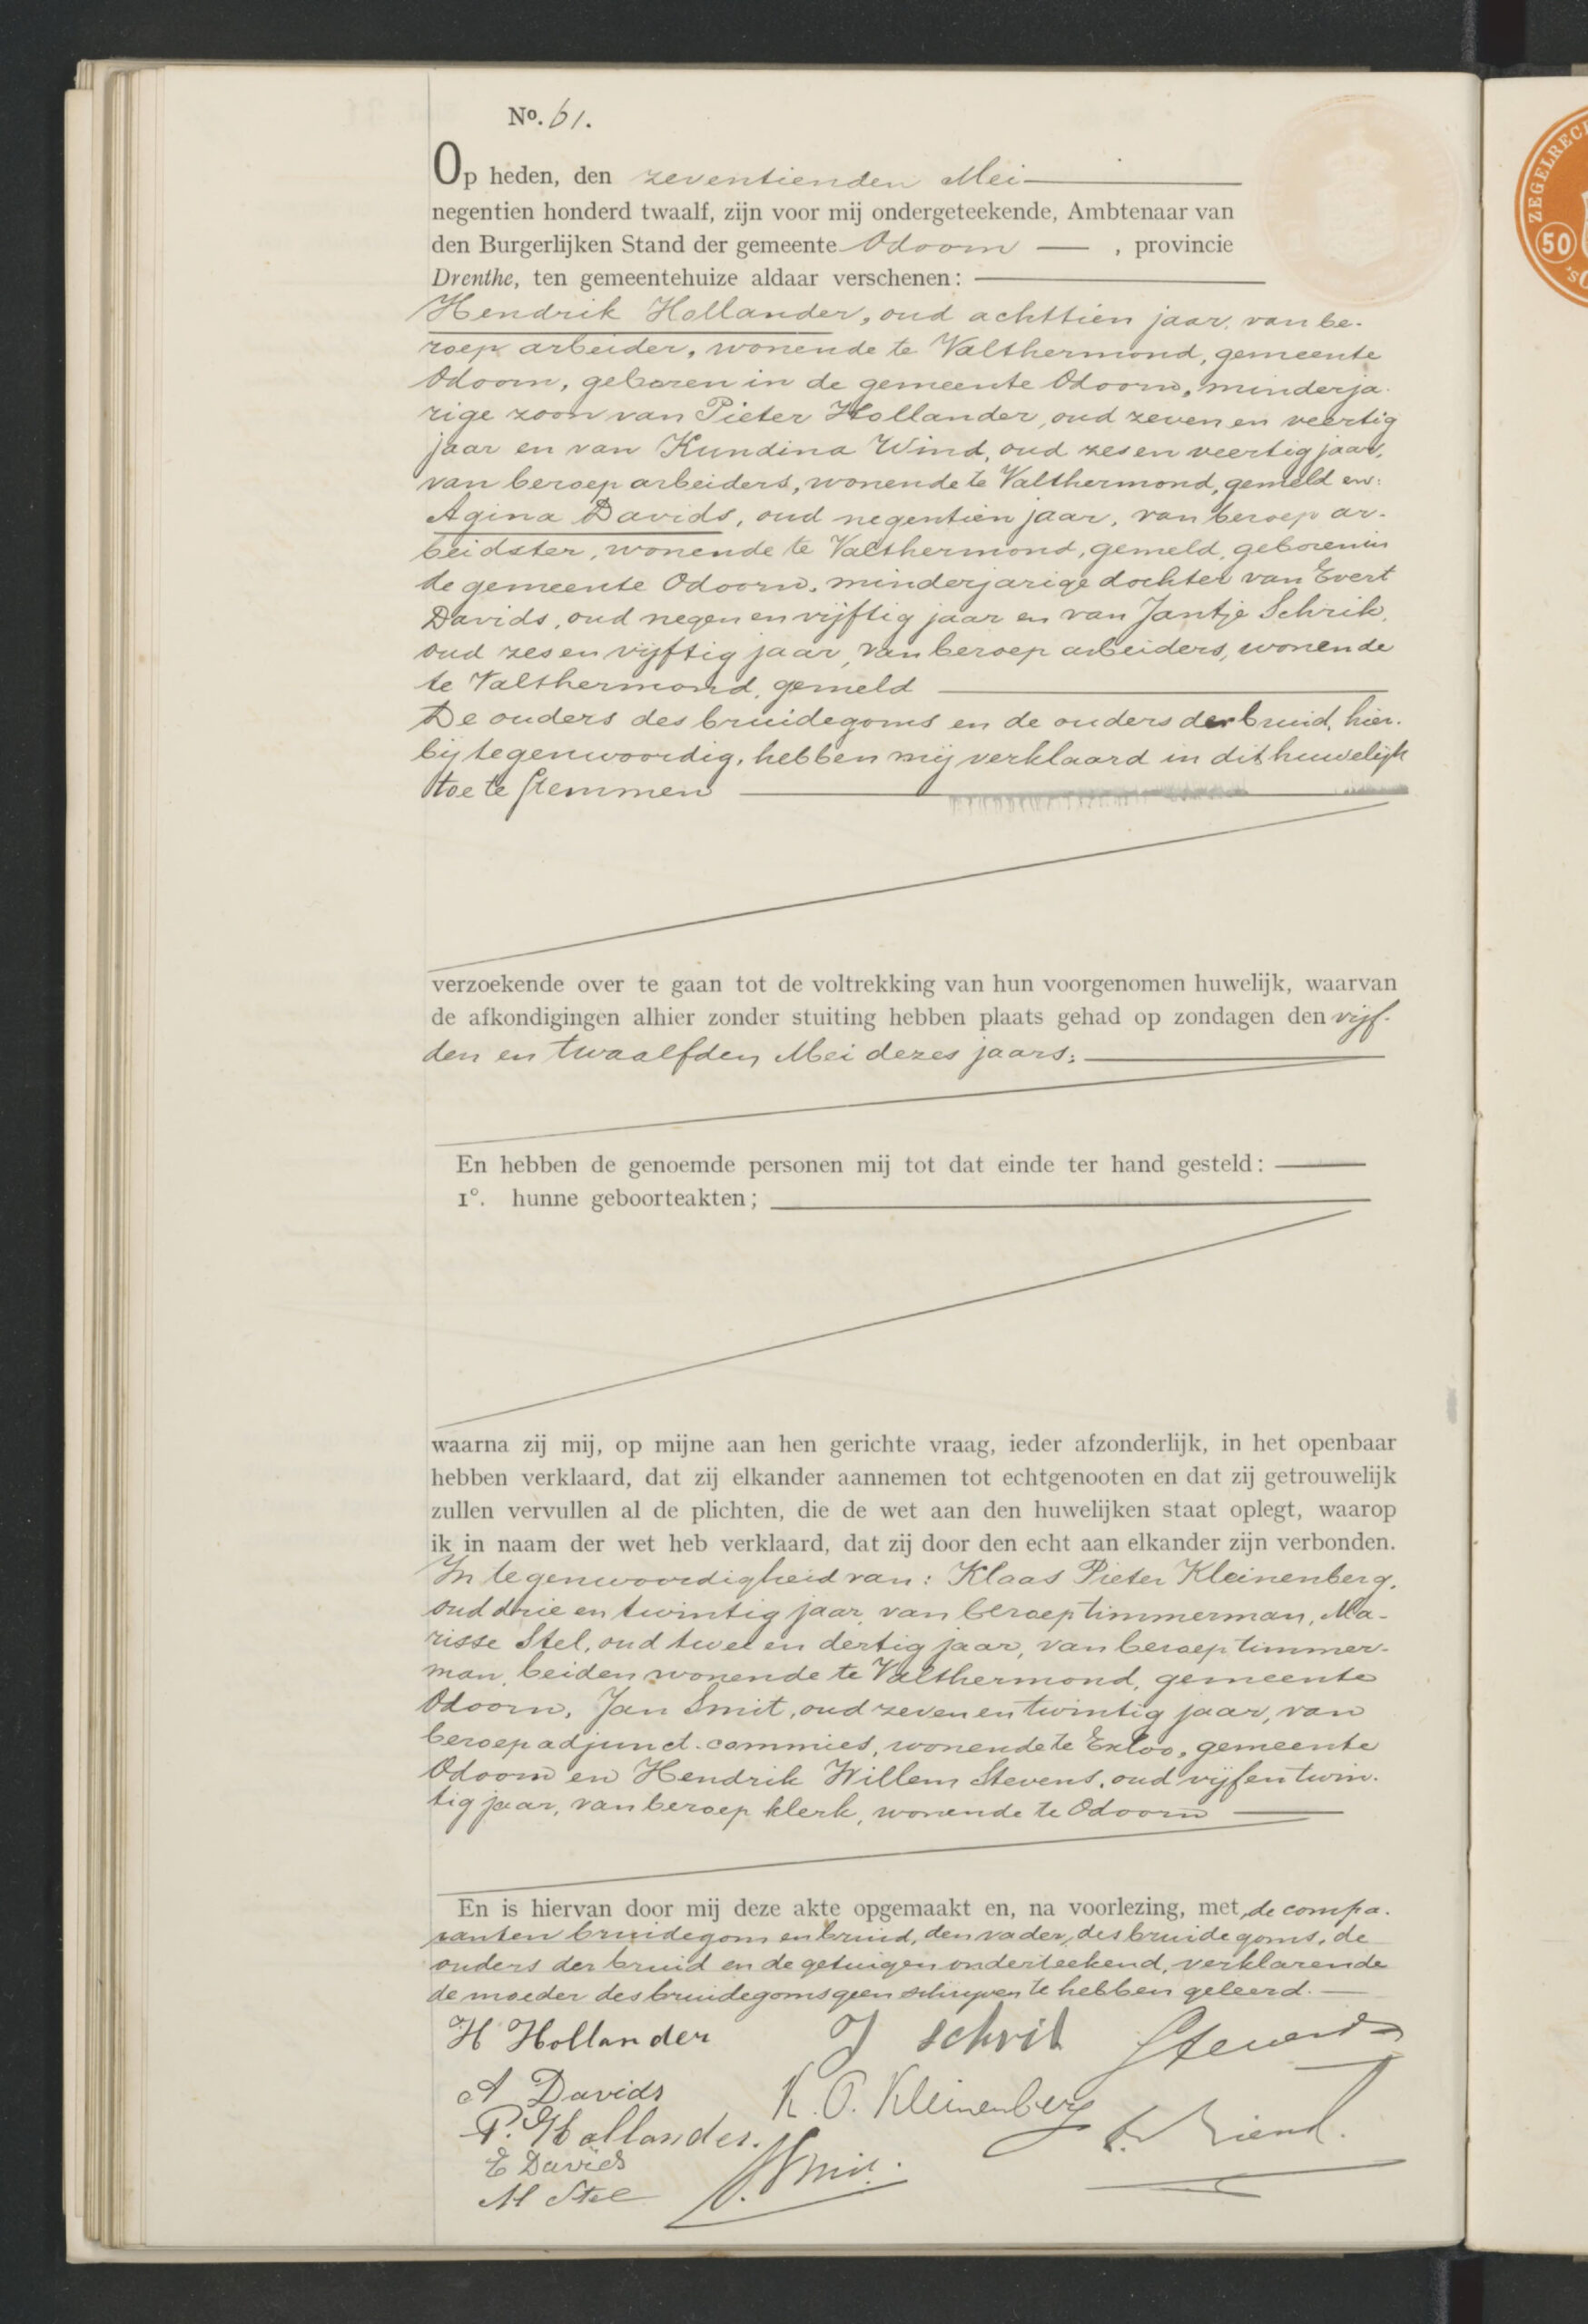 No. 61.
Op heden, den zeventienden Mei
negentien honderd twaalf, zijn voor mij ondergeteekende, Ambtenaar van
den Burgerlijken Stand der gemeente Odoorn, provincie
Drenthe, ten gemeentehuize aldaar verschenen:
Hendrik Hollander, oud achttien jaar, van be-
roep arbeider, wonende te Valthermond, gemeente
Odoorn, geboren in de gemeente Odoorn, minderja-
rige zoon van Pieter Hollander, oud zeven en veertig
jaar en van Kundina Wind, oud zes en veertig jaar,
van beroep arbeiders, wonende te Valthermond, gemeld en:
Agina Davids, oud negentien jaar, van beroep ar-
beidster, wonende te Valthermond, gemeld, geboren in
de gemeente Odoorn, minderjarige dochter van Evert
Davids, oud negen en vijftig jaar en van Jantje Schrik,
oud zes en vijftig jaar, van beroep arbeiders, wonende
te Valthermond, gemeld
De ouders des bruidegoms en de ouders der bruid, hier-
bij tegenwoordig, hebben mij verklaard in dit huwelijk
toe te stemmen
verzoekende over te gaan tot de voltrekking van hun voorgenomen huwelijk, waarvan
de afkondigingen alhier zonder stuiting hebben plaats gehad op zondagen den vijf-
den en twaalfden Mei dezes jaars;
En hebben de genoemde personen mij tot dat einde ter hand gesteld:
1°. hunne geboorteakten;
waarna zij mij, op mijne aan hen gerichte vraag, ieder afzonderlijk, in het openbaar
hebben verklaard, dat zij elkander aannemen tot echtgenooten en dat zij getrouwelijk
zullen vervullen al de plichten, die de wet aan den huwelijken staat oplegt, waarop
ik in naam der wet heb verklaard, dat zij door den echt aan elkander zijn verbonden.
In tegenwoordigheid van: Klaas Pieter Kleinenberg,
oud drie en twintig jaar, van beroep timmerman, Ma-
risse Stel, oud twee en dertig jaar, van beroep timmer-
man, beiden wonende te Valthermond, gemeente
Odoorn, Jan Smit, oud zeven en twintig jaar, van
beroep adjunct-commies, wonende te Exloo, gemeente
Odoorn en Hendrik Willem Stevens, oud vijf en twin-
tig jaar, van beroep klerk, wonende te Odoorn
En is hiervan door mij deze akte opgemaakt en, na voorlezing, met de compa-
ranten bruidegom en bruid, den vader des bruidegoms, de
ouders der bruid en de getuigen onderteekend, verklarende
de moeder des bruidegoms geen schrijven te hebben geleerd.
H Hollander J Schrik Stevens
A Davids K. P. Kleinenberg
P. Hollander.
E Davids J. Smit.
M Stel
ZEGELRECH
50